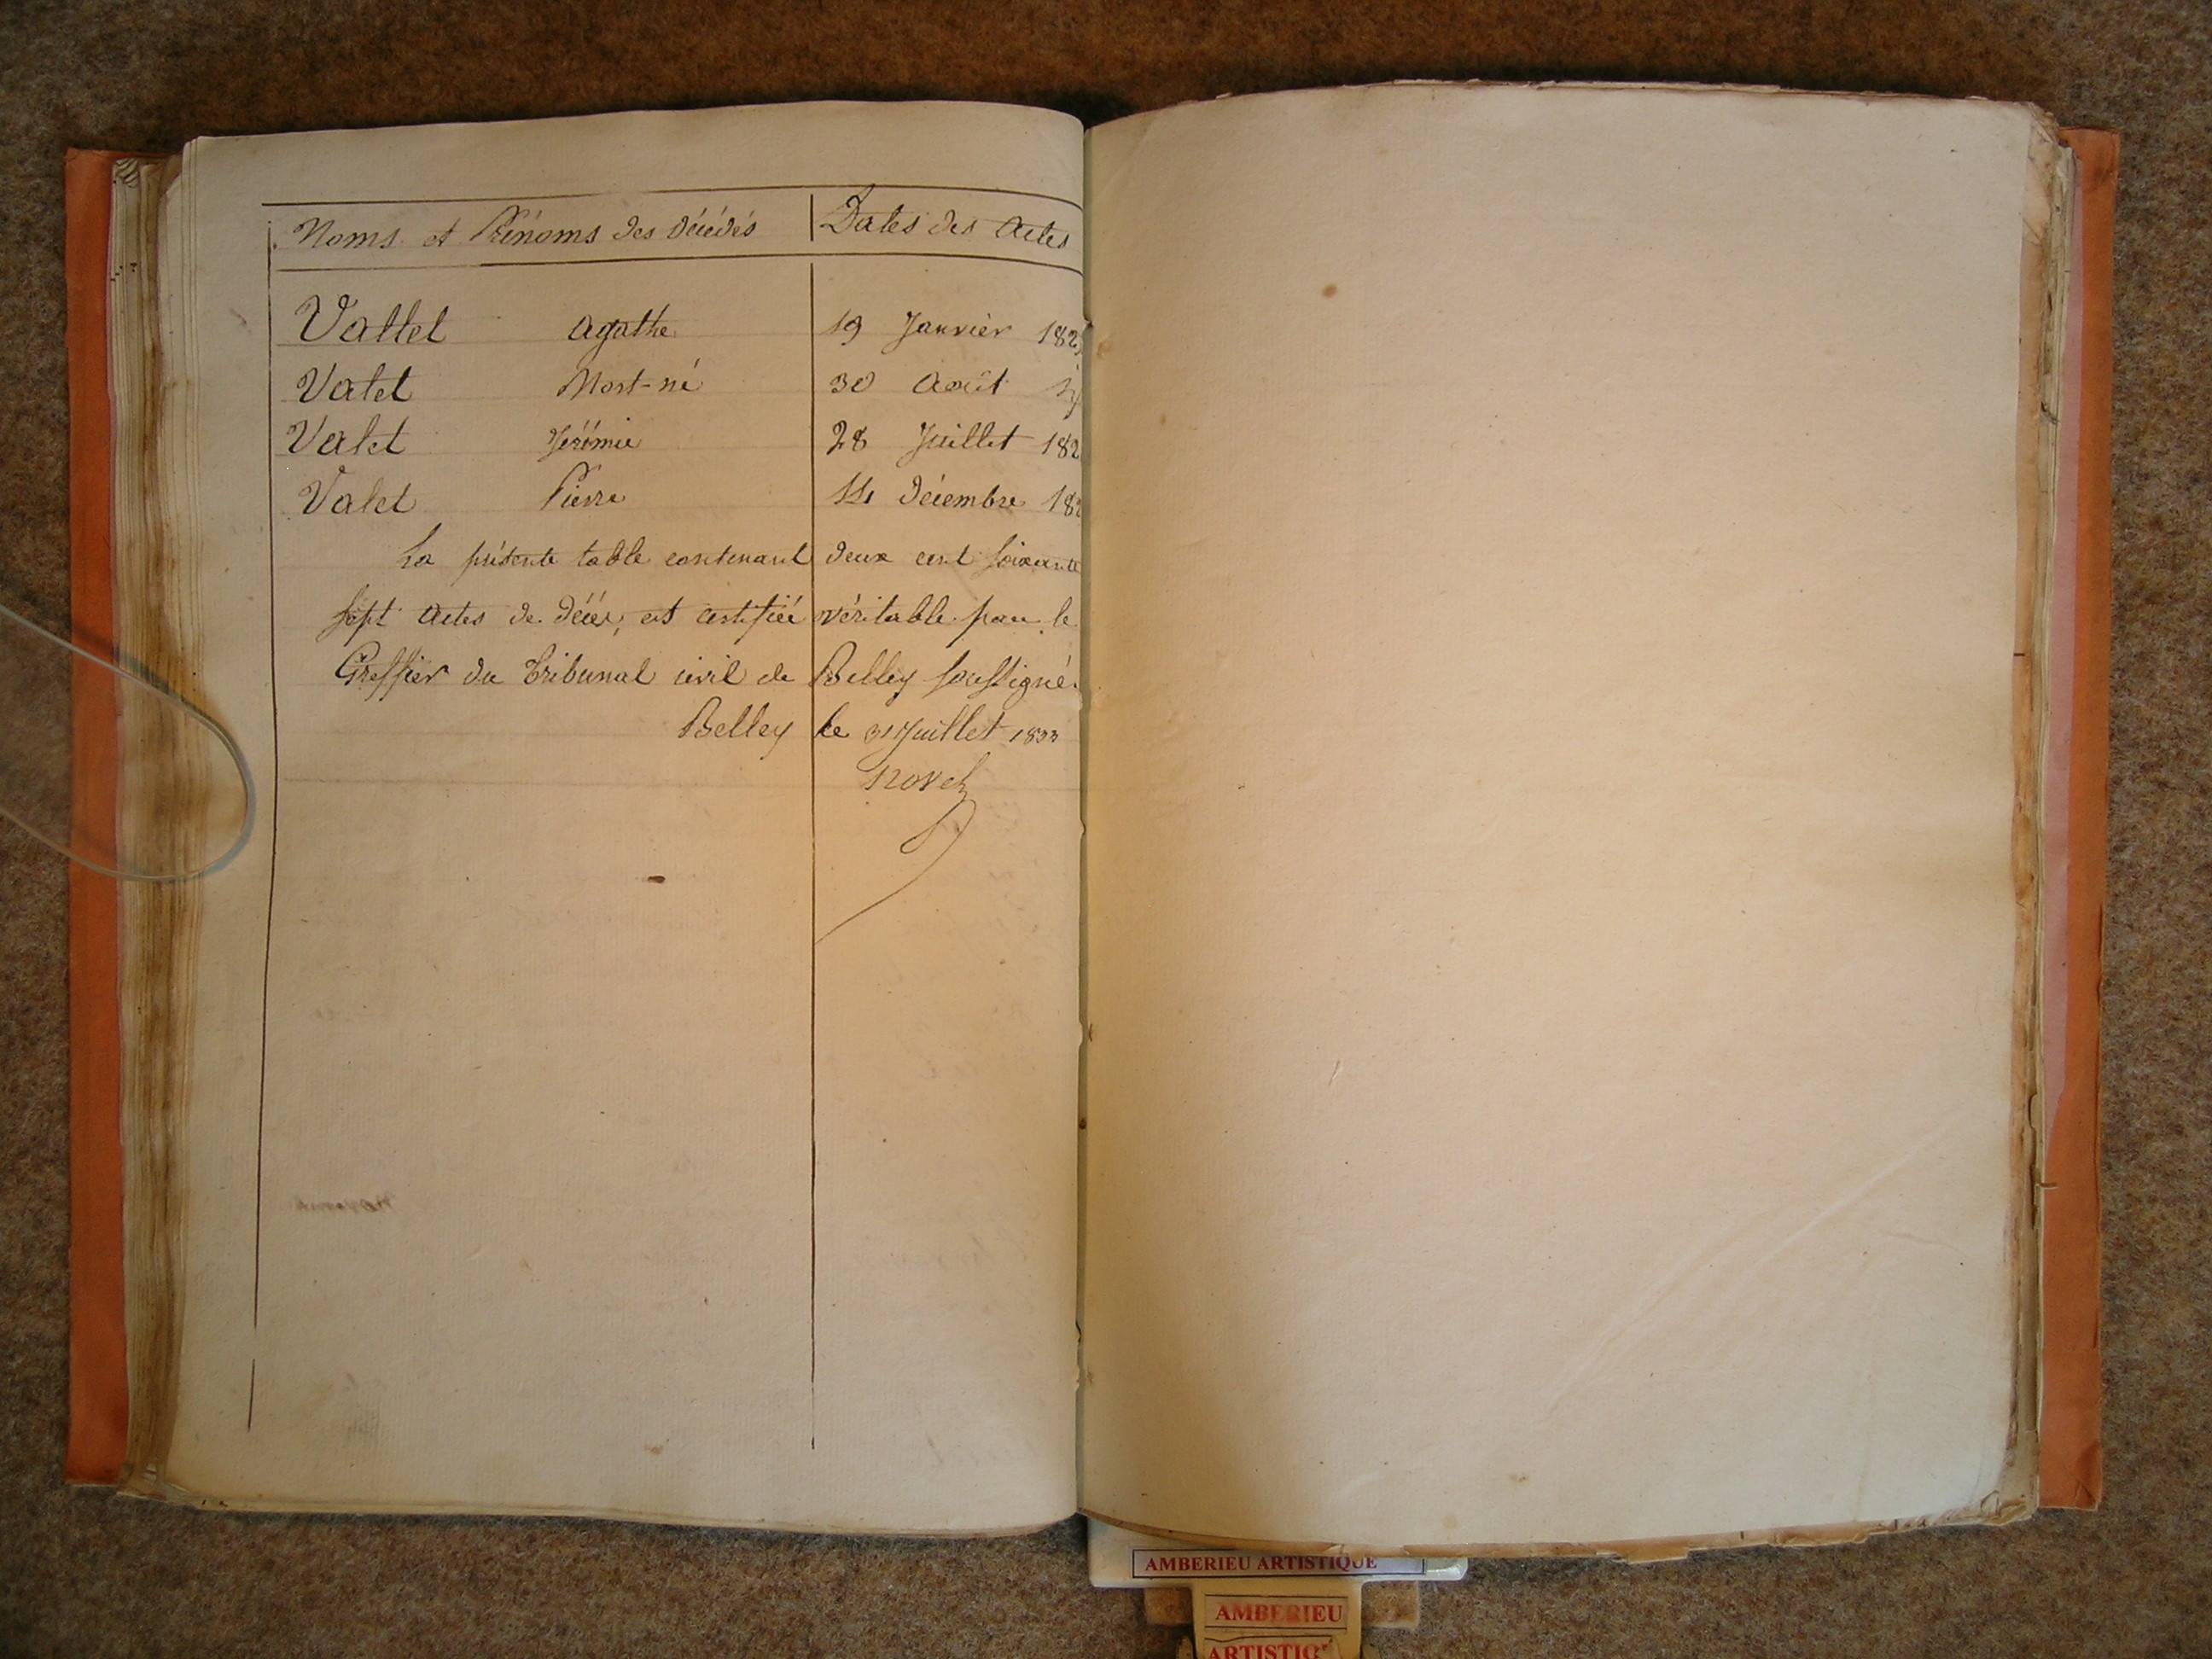 Noms et Prénoms des décédés Dates des Actes
Vallet Agathe 19 Janvier 182
Valet Mort-né 30 Août
Valet Jérémie 28 Juillet 182
Valet Pierre 14 décembre 182
La présente table contenant deux cent soixante
sept Actes de décès, est certifiée véritable par le
Greffier du Tribunal civil de Belley soussigné.
Belley le 31 Juillet 1833
AMBERIEU ARTISTIQUE
AMBERIEU